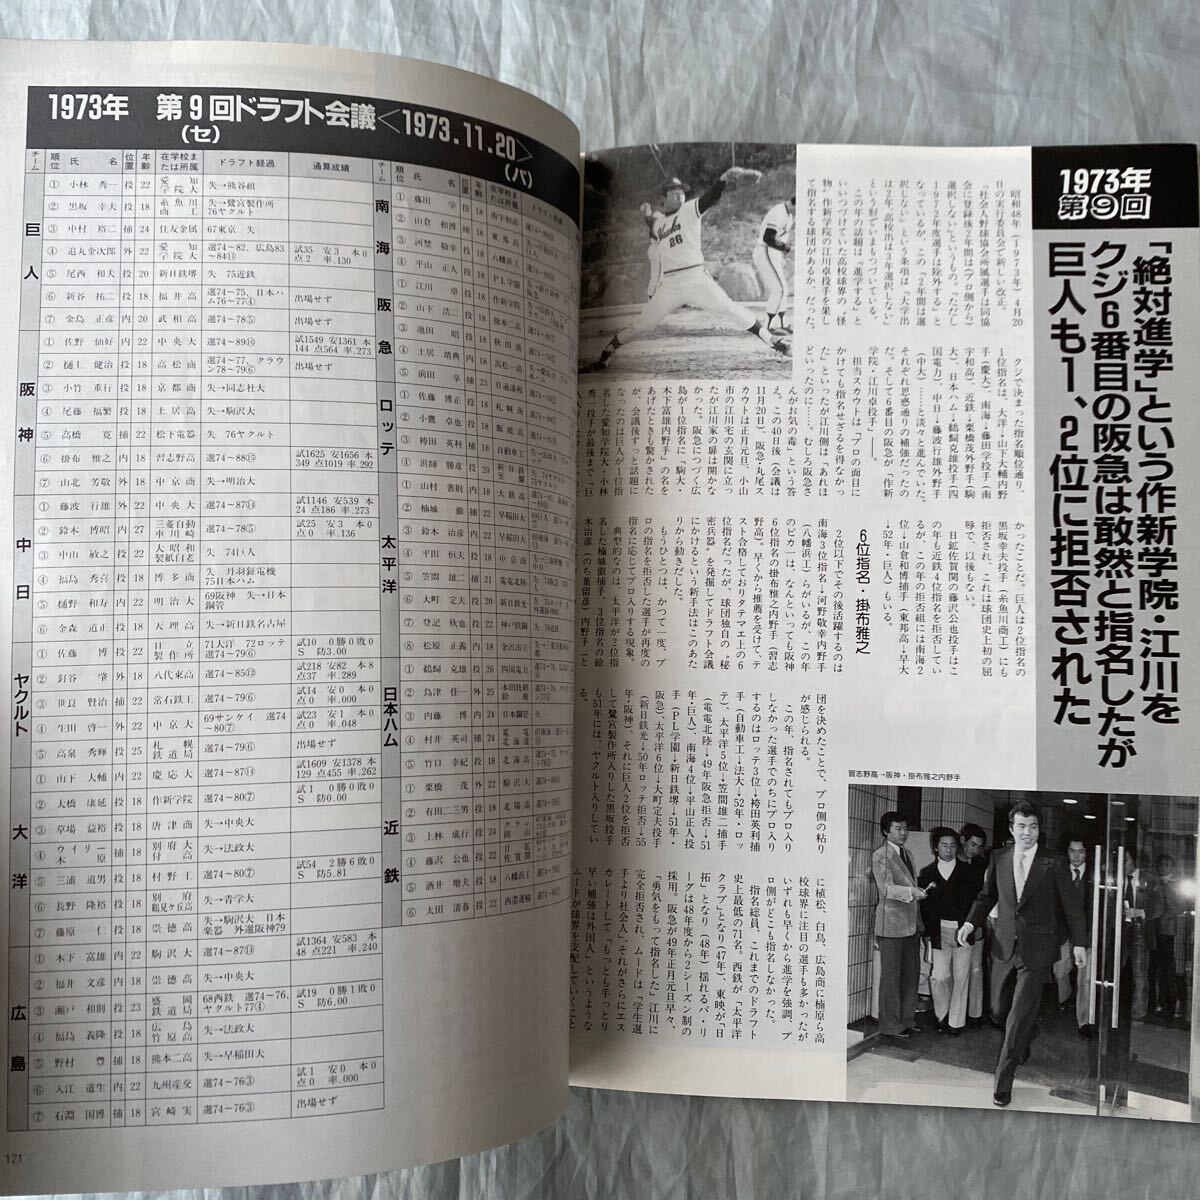 1973年 第9回ドラフト会議<1973.11.20>
(セ)
(パ)
チーム 順位 氏名 位置 年齢 在学校または所属 ドラフト経過 通算成績
巨人
① 小林 秀一 投 22 愛知学院大 失→熊谷組
② 黒坂 幸夫 投 18 糸魚川商工 失→鷺宮製作所 76ヤクルト
③ 中村 裕二 捕 24 住友金属 67東京 失
④ 迫丸金次郎 外 22 愛知学院大 選74~82、広島83~84⑪ 試35 安3 本0 点2 率.130
⑤ 尾西 和夫 投 20 新日鉄堺 失 75近鉄
⑥ 新谷 祐二 投 18 福井高 選74~75、日本ハム76~77④ 出場せず
⑦ 金島 正彦 内 20 武相高 選74~78⑤ 出場せず
阪神
① 佐野 仙好 内 22 中央大 選74~89⑯ 試1549 安1361 本144 点564 率.273
② 樋上 健治 投 18 高松商 選74~77、クラウン78~79⑥ 出場せず
③ 小竹 重行 投 18 京都商 失→同志社大
④ 尾藤 福繁 投 18 土居高 失→駒沢大
⑤ 高橋 寛 捕 22 松下電器 失 76ヤクルト
⑥ 掛布 雅之 内 18 習志野高 選74~88⑮ 試1625 安1656 本349 点1019 率.292
⑦ 山北 芳敬 外 18 中京商 失→明治大
中日
① 藤波 行雄 外 22 中央大 選74~87⑭ 試1146 安539 本24 点186 率.273
② 鈴木 博昭 内 27 三菱自動車川崎 選74~78⑤ 試25 安3 本0 点0 率.136
③ 中山 敏之 投 22 大昭和製紙白老 失 74巨人
④ 福島 秀喜 投 18 博多商 失 丹羽鉦電機 75日本ハム
⑤ 樋野 和寿 内 22 明治大 69阪神 失→日本鋼管
⑥ 金森 道正 投 18 大理高 失→新日鉄名古屋
ヤクルト
① 佐藤 博 投 22 日立製作所 71大洋 72ロッテ 選74~79⑥ 試10 0勝0敗0S 防3.00
② 釘谷 肇 外 18 八代東高 選74~85⑫ 試218 安82 本8 点37 率.237
③ 世良 賢治 捕 22 常石鉄工 選74~79⑥ 試14 安0 本0 点0 率.000
④ 生田 啓一 外 22 中京大 69サンケイ 選74~80⑦ 試23 安1 本0 点0 率.048
⑤ 高泉 秀輝 投 25 札幌鉄道局 選74~79⑥ 出場せず
大洋
① 山下 大輔 内 22 慶応大 選74~87⑭ 試1609 安1378 本129 点455 率.262
② 大橋 康延 投 18 作新学院 選74~80⑦ 試1 0勝0敗0S 防0.00
③ 草場 益裕 投 18 唐津商 失→中央大
④ ウイリー木原 捕 18 別府大付高 失→法政大
⑤ 三浦 道男 投 18 村野工 選74~80⑦ 試54 2勝6敗0S 防5.81
⑥ 長野 隆裕 投 18 別府鶴見ケ丘高 失→青学大
⑦ 藤原 仁 投 18 崇徳高 失→駒沢大 日本楽器 外選阪神79
広島
① 木下 富雄 内 22 駒沢大 選74~87⑭ 試1364 安583 本48 点221 率.240
② 福井 文彦 内 18 崇徳高 失→中央大
③ 瀬戸 和則 投 23 盛岡鉄道局 68西鉄 選74~76、ヤクルト77④ 試19 0勝1敗0S 防6.00
④ 福島 義隆 投 18 広島竹原高 失→法政大
⑤ 野村 豊 捕 18 熊本二高 失→早稲田大
⑥ 入江 道生 内 22 九州産交 選74~76③ 試1 安0 本0 点0 率.000
⑦ 石淵 国博 捕 18 宮崎実 選74~76③ 出場せず
南海
① 藤田 学 投 18 南宇和高
② 山倉 和博 捕 18 東邦高
③ 河埜 敬幸 内 18 八幡浜工
④ 平山 正人 内 18 PL学園
阪急
① 江川 卓 投 18 作新学院
② 山下 浩二 18 熊本二高
③ 池田 昭 投 18 秋田商
④ 土居 靖典 内 18 高松一高
⑤ 前田 享 捕 23 日通浦和
ロッテ
① 佐藤 博正 投 18 札幌商
② 小鷹 卓也 18 飯能高
③ 袴田 英利 捕 18 自動車工
④ 浜師 勝彦 投 20
太平洋
① 山村 善則 内 18 大鉄高
② 楠城 徹 捕 22 早稲田大
③ 鈴木 治彦 内 22 早稲田大
④ 平田 恒夫 内 18 中京商
⑤ 笠間 雄二 捕 21 電電北陸
⑥ 大町 定夫 投 20 新日鉄光
⑦ 登記 欣也 投 22 神戸製鋼
⑧ 松原 正義 内 18 金沢市工
日本ハム
① 鵜飼 克雄 投 25 四国電力
② 島津 佳一 外 25 本田技研鈴鹿
③ 内藤 博 内 24 日本鋼管
④ 村井 英司 捕 24 電電北海道
⑤ 竹口 幸紀 投 18 北海高
近鉄
① 栗橋 茂 外 22 駒沢大
② 有田二三男 投 18 北陽高
③ 上林 成行 投 24 クラレ岡山
④ 藤沢 公也 投 22 日鉱佐賀関
⑤ 酒井 増夫 投 18 八幡浜工
⑥ 太田 清春 投 22 西濃運輸
121
1973年
第9回
「絶対進学」という作新学院・江川を
クジ6番目の阪急は敢然と指名したが
巨人も1、2位に拒否された
昭和48年(1973年)4月20
日の実行委員会で新しい改正。
「社会人野球協会所属選手は同協
会に登録後2年間は(プロ側から)
選択しない」というもの。「ただし
1972年度選手は除外する」と
なっているが、この「2年間は選
択しない」という条項は、「大学出
は2年、高校出は3年選択しない」
という形でいまもつづいている。
この年の話題は「進学する」と
いいつづけていた高校球界の〝怪
物〟作新学院の江川卓投手を果し
て指名する球団があるか、だった。
クジで決まった指名順位通り、
1位指名は、大洋→山下大輔内野
手(慶大)、南海→藤田学投手(南
宇和高)、近鉄→栗橋茂外野手(駒
大)、日本ハム→鵜飼克雄投手(四
国電力)、中日→藤波行雄外野手
(中大)……と淡々と進んでいた。
それぞれ思惑通りの補強だったの
だ。そして6番目の阪急が「作新
学院・江川卓投手」——
担当スカウトは「プロの面目に
かけても指名せざるを得なかっ
た」といったが江川側は「あれほ
どいったのに……むしろ阪急さ
んがお気の毒」という答
え。この40日後(会議は
11月20日)、阪急・丸尾ス
カウトは正月元旦、小山
市の江川宅の玄関に立っ
たが江川家の扉は開かな
かった。阪急につづく広
島が1位指名に「駒大・
木下富雄内野手」の名を
あげたときも驚かされた
が、会議後ずっと話題に
なったのは巨人が1位指
名した愛知学院大・小林
秀一投手が最後まで「巨
かったことだ。「巨人は2位指名の
黒坂幸夫投手(糸魚川商工)にも
拒否され、これは球団史上初の屈
辱で、以後もない。
日鉱佐賀関の藤沢公也投手はこ
の年も近鉄4位指名を拒否してい
るが、この年の拒否組には南海2
位→山倉和博捕手(東邦高→早大
→52年・巨人)もいる。
6位指名・掛布雅之
2位以下でその後活躍するのは
南海3位指名→河野敬幸内野手
(八幡浜工)らがいるが、この年
のピカ一は、なんといっても阪神
6位指名の掛布雅之内野手(習志
野高)。早くから推薦を受けて、テ
スト合格しておりタテマエ上の6
位指名だったが、球団独自の〝秘
密兵器〟を発掘してドラフト会議
にかけるという新手法はこのあた
りから動きだした。
もうひとつは、かつて一度、プ
ロの指名を拒否した選手が再度の
指名に応じてプロ入りする現象。
典型的なのは、太平洋が2位指
名した楠城徹捕手、3位指名の鈴
木治彦(のち葉留彦)内野手(と
団を決めたことで、プロ側の粘り
が感じられる。
この年、指名されてもプロ入り
しなかった選手でのちにプロ入り
するのはロッテ3位→袴田英利捕
手(自動車工→法大→52年・ロッ
テ)、太平洋5位→笠間雄二捕手
(電電北陸→49年阪急拒否→51
年・巨人)、南海4位→平山正人投
手(PL学園→新日鉄堺→51年・
阪急)、太平洋6位→大町定夫投手
(新日鉄光→50年ロッテ拒否→55
年・阪神)、それに巨人2位を拒否
して鷺宮製作所入りした黒坂投手
も51年には、ヤクルト入りしてい
に植松、白鳥、広島商に楠原ら高
校球界に注目の選手も多かったが
いずれも早くから進学を強調。プ
ロ側がどこも指名しなかった。
指名総員、これまでのドラフト
史上最低の71名。西鉄が「太平洋
クラブ」となり(47年)、東映が「日
拓」となり(48年)揺れるパ・リ
ーグは48年度から2シーズン制の
採用。阪急が49年正月元旦早々、
「勇気をもって指名した」江川に
完全拒否され、ムードは「学生選
手より社会人」、それがさらにエス
カレートして「もっとも手っとり
早い補強は外国人」というような
ムードが球界を支配していくこと
習志野高→阪神・掛布雅之内野手
Hawks
26